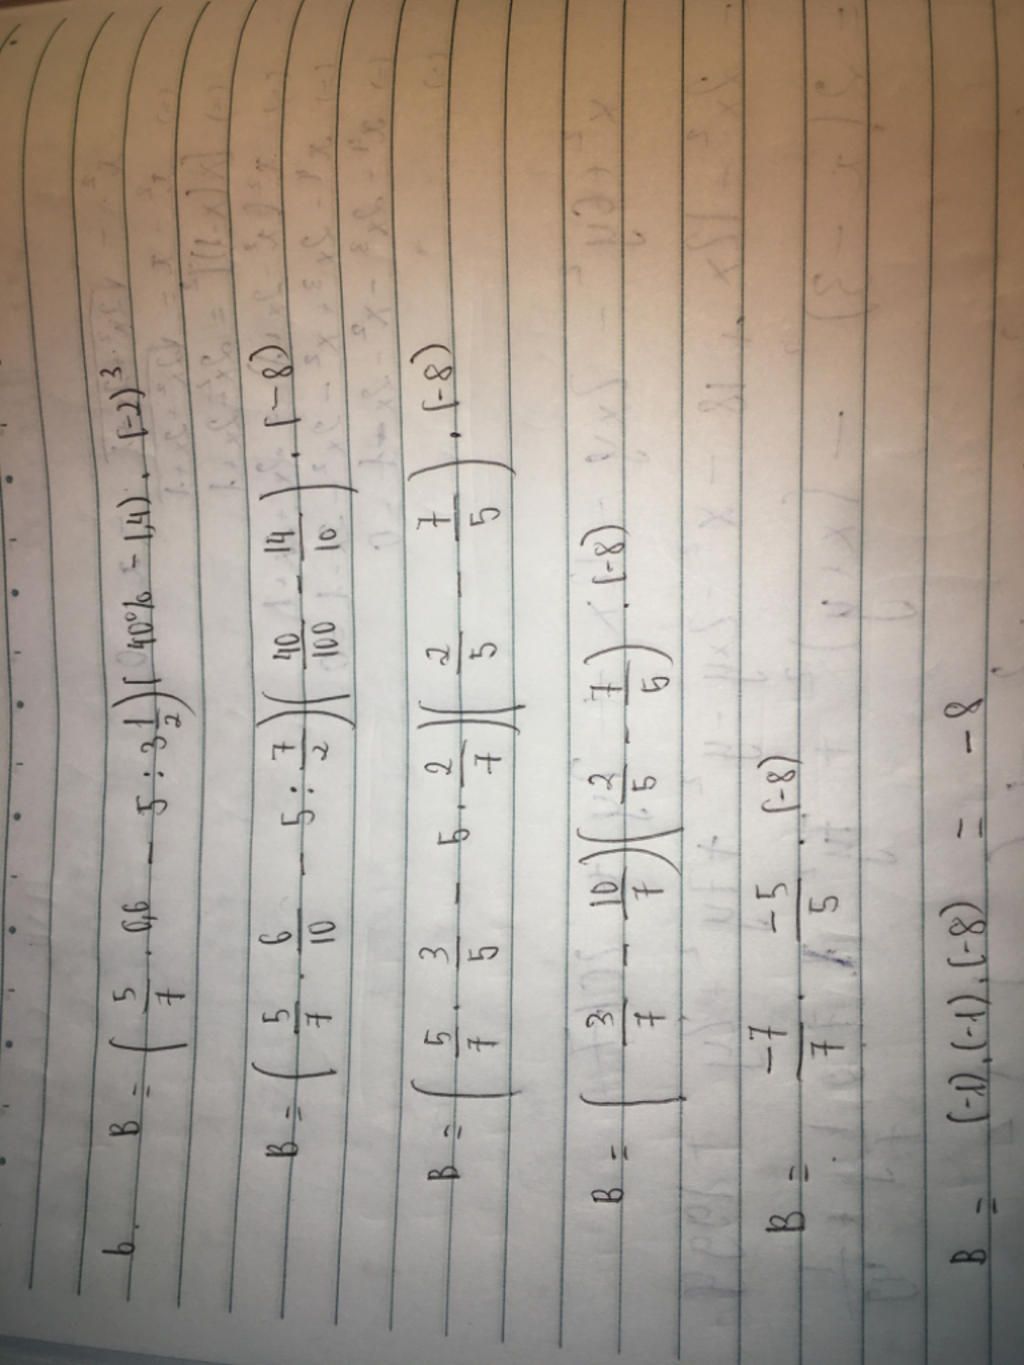 b. B = ( 5/7 . 0,6 - 5 : 3 1/2 ) ( 40% - 1,4) . (-2)³
B = ( 5/7 . 6/10 - 5 : 7/2 ) ( 40/100 - 14/10 ) . (-8)
B = ( 5/7 . 3/5 - 5 . 2/7 ) ( 2/5 - 7/5 ) . (-8)
B = ( 3/7 - 10/7 ) ( 2/5 - 7/5 ) . (-8)
B = -7/7 . -5/5 . (-8)
B = (-1).(-1).(-8) = -8